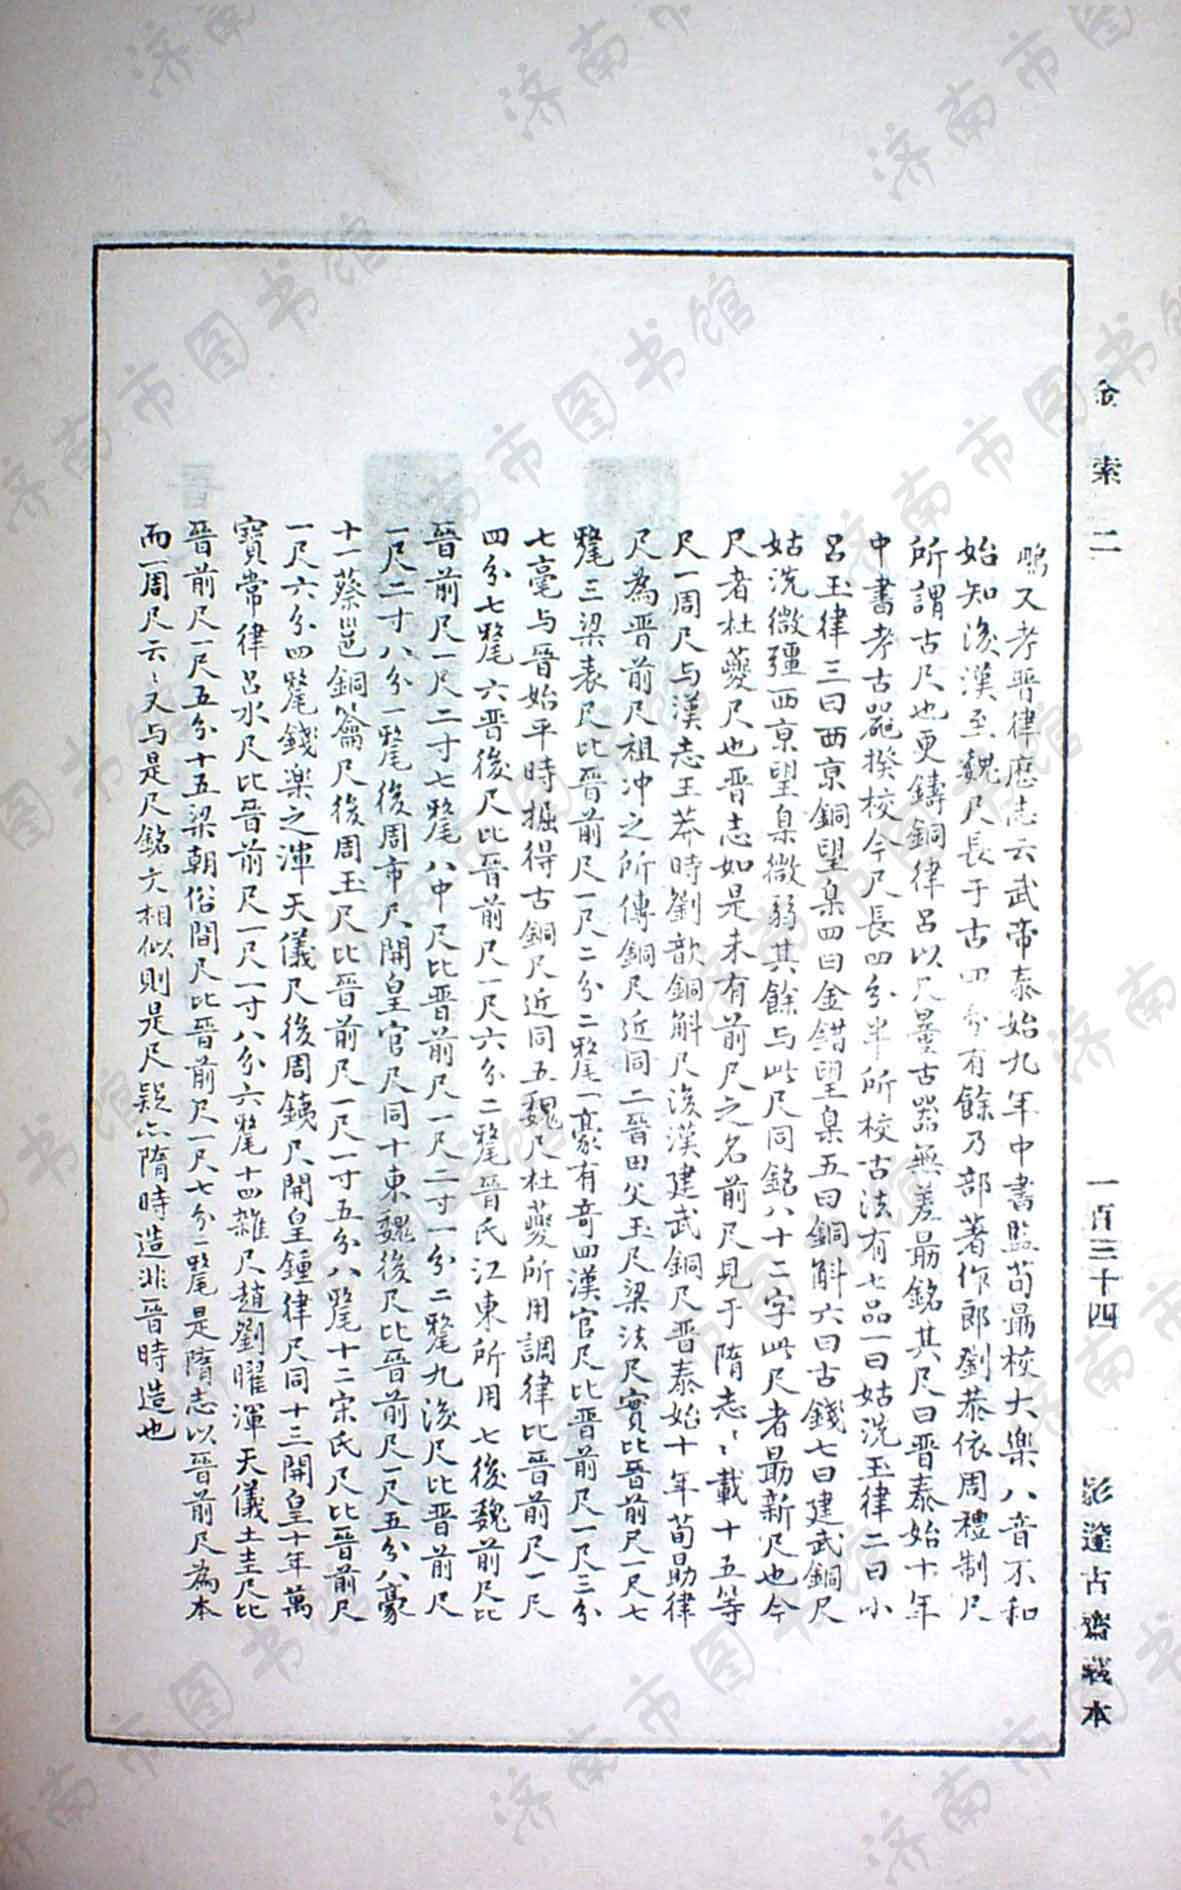 金索二
一百三十四
影邃古齋戟本
鵬又考晉律歷志云武帝泰始九年中書監荀勗校大樂八音不和
始知後漢至魏尺長于古四分有餘乃部著作郎劉恭依周禮制尺
所謂古尺也更鑄銅律呂以尺量古器無差勗銘其尺曰晉泰始十年
中書考古器揆校今尺長四分半所校古法有七品一曰姑洗玉律二曰小
呂玉律三曰西京銅望臬四曰金錯望臬五曰銅斛六曰古錢七曰建武銅尺
姑洗微彊西京望臬微弱其餘与此尺同銘八十二字此尺者勗新尺也今
尺者杜夔尺也晉志如是未有前尺之名前尺見于隋志〻載十五等
尺一周尺与漢志王莽時劉歆銅斛尺後漢建武銅尺晉泰始十年荀勗律
尺為晉前尺祖沖之所傳銅尺近同二晉田父玉尺梁法尺實比晉前尺一尺七
氂三梁表尺比晉前尺一尺二分二氂一豪有奇四漢官尺比晉前尺一尺三分
七毫与晉始平時掘得古銅尺近同五魏尺杜夔所用調律比晉前尺一尺
四分七氂六晉後尺比晉前尺一尺六分二氂晉氏江東所用七後魏前尺比
晉前尺一尺二寸七氂八中尺比晉前尺一尺二寸一分二氂九後尺比晉前尺
一尺二寸八分一氂後周市尺開皇官尺同十東魏後尺比晉前尺一尺五分八豪
十一蔡邕銅籥尺後周玉尺比晉前尺一尺一寸五分八氂十二宋氏尺比晉前尺
一尺六分四氂錢樂之渾天儀尺後周鐵尺開皇鍾律尺同十三開皇十年萬
寶常律呂水尺比晉前尺一尺一寸八分六氂十四雜尺趙劉曜渾天儀土圭尺比
晉前尺一尺五分十五梁朝俗間尺比晉前尺一尺七分一氂是隋志以晉前尺為本
而一周尺云〻又与是尺銘文相似則是尺疑亦隋時造非晉時造也
济南市图书馆